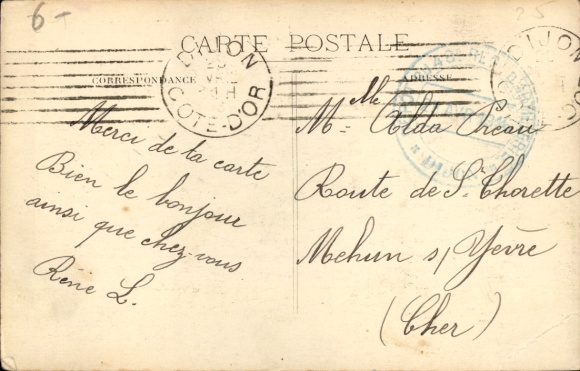 6-
25
CARTE POSTALE
CORRESPONDANCE
ADRESSE
DIJON
COTE-D'OR
DIJON
Merci de ta carte
Bien le bonjour
ainsi que chez vous
René L.
Mlle Alda Preau
Route de St Thorette
Mehun s/ Yèvre
(Cher)